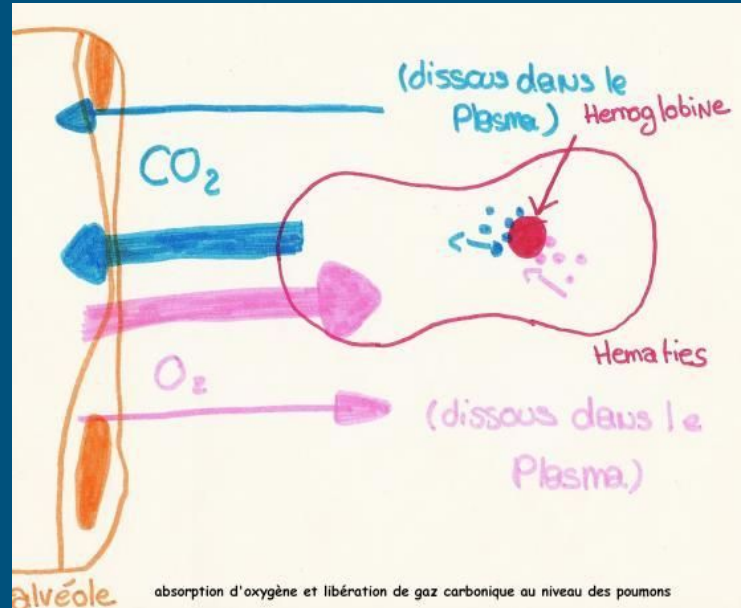 (dissous dans le
Plasma)
Hemoglobine
CO₂
Hematies
O₂
(dissous dans le
Plasma)
alvéole
absorption d'oxygène et libération de gaz carbonique au niveau des poumons